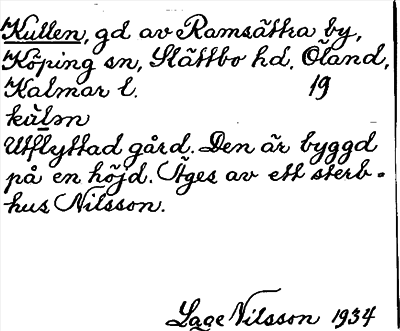 Kullen, gd av Ramsättra by,
Köping sn, Slättbo hd. Öland,
Kalmar l. 19
kùlɘn
Utflyttad gård. Den är byggd
på en höjd. Äges av ett sterb-
hus Nilsson.
Lage Nilsson 1934